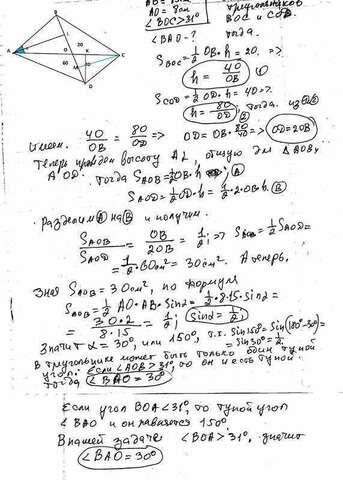 AD = 8см
треугольников
∠BOC > 31°
BOC и COD
∠BAO - ?
тогда
S BOC = 1/2 OB · h = 20 =>
h = 40/OB
S COD = 1/2 OD · h = 40 =>
h = 80/OD
40/OB = 80/OD => OD = OB · 80/40 => OD = 2OB
Теперь высоту AL, для △ AOB и
AOD. Тогда S AOB = 1/2 OB · h (А)
S AOD = 1/2 OD · h = 1/2 · 2 · OB · h. (В)
Разделим (А) на (В) и получим.
S AOB / S AOD = OB / 2OB = 1/2; => S AOB = 1/2 S AOD =
= 1/2 · 60см² = 30см². А теперь,
Зная S AOB = 30см², по формуле
S AOB = 1/2 AO · AB · Sin α = 1/2 · 8 · 15 · Sin α =
= 30 · 2 / 8 · 15 = 1/2; sin α = 1/2;
Значит α = 30°, или 150°, т.к. Sin 150° = Sin(180° - 30°) =
= Sin 30° = 1/2.
В треугольнике может быть только один тупой
угол. Если ∠AOB > 31°, то он и есть тупой.
Тогда ∠BAO = 30°
Если угол BOA < 31°, то тупой угол
∠ BAO и он равняется 150°.
В нашей задаче ∠BOA > 31°, значит
∠BAO = 30°
A
B
O
K
C
D
20
60
40